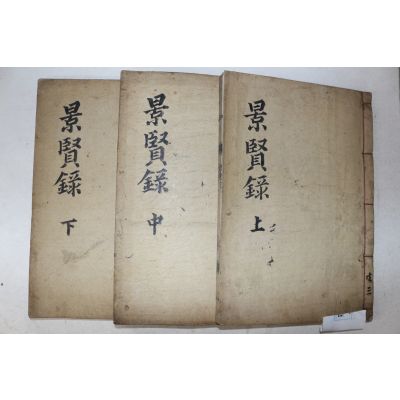 景賢錄
上
景賢錄
中
景賢錄
下